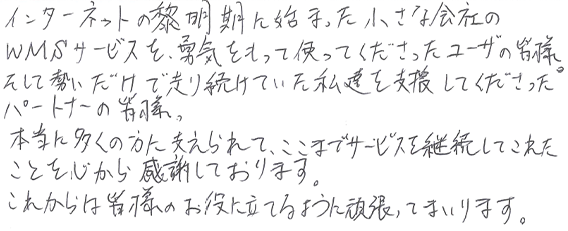 インターネットの黎明期に始まった小さな会社の
WMSサービスを、勇気をもって使ってくださったユーザの皆様
そして勢いだけで走り続けていた私達を支援してくださった
パートナーの皆様。
本当に多くの方に支えられて、ここまでサービスを継続してこれた
ことを心から感謝しております。
これからは皆様のお役に立てるように頑張ってまいります。